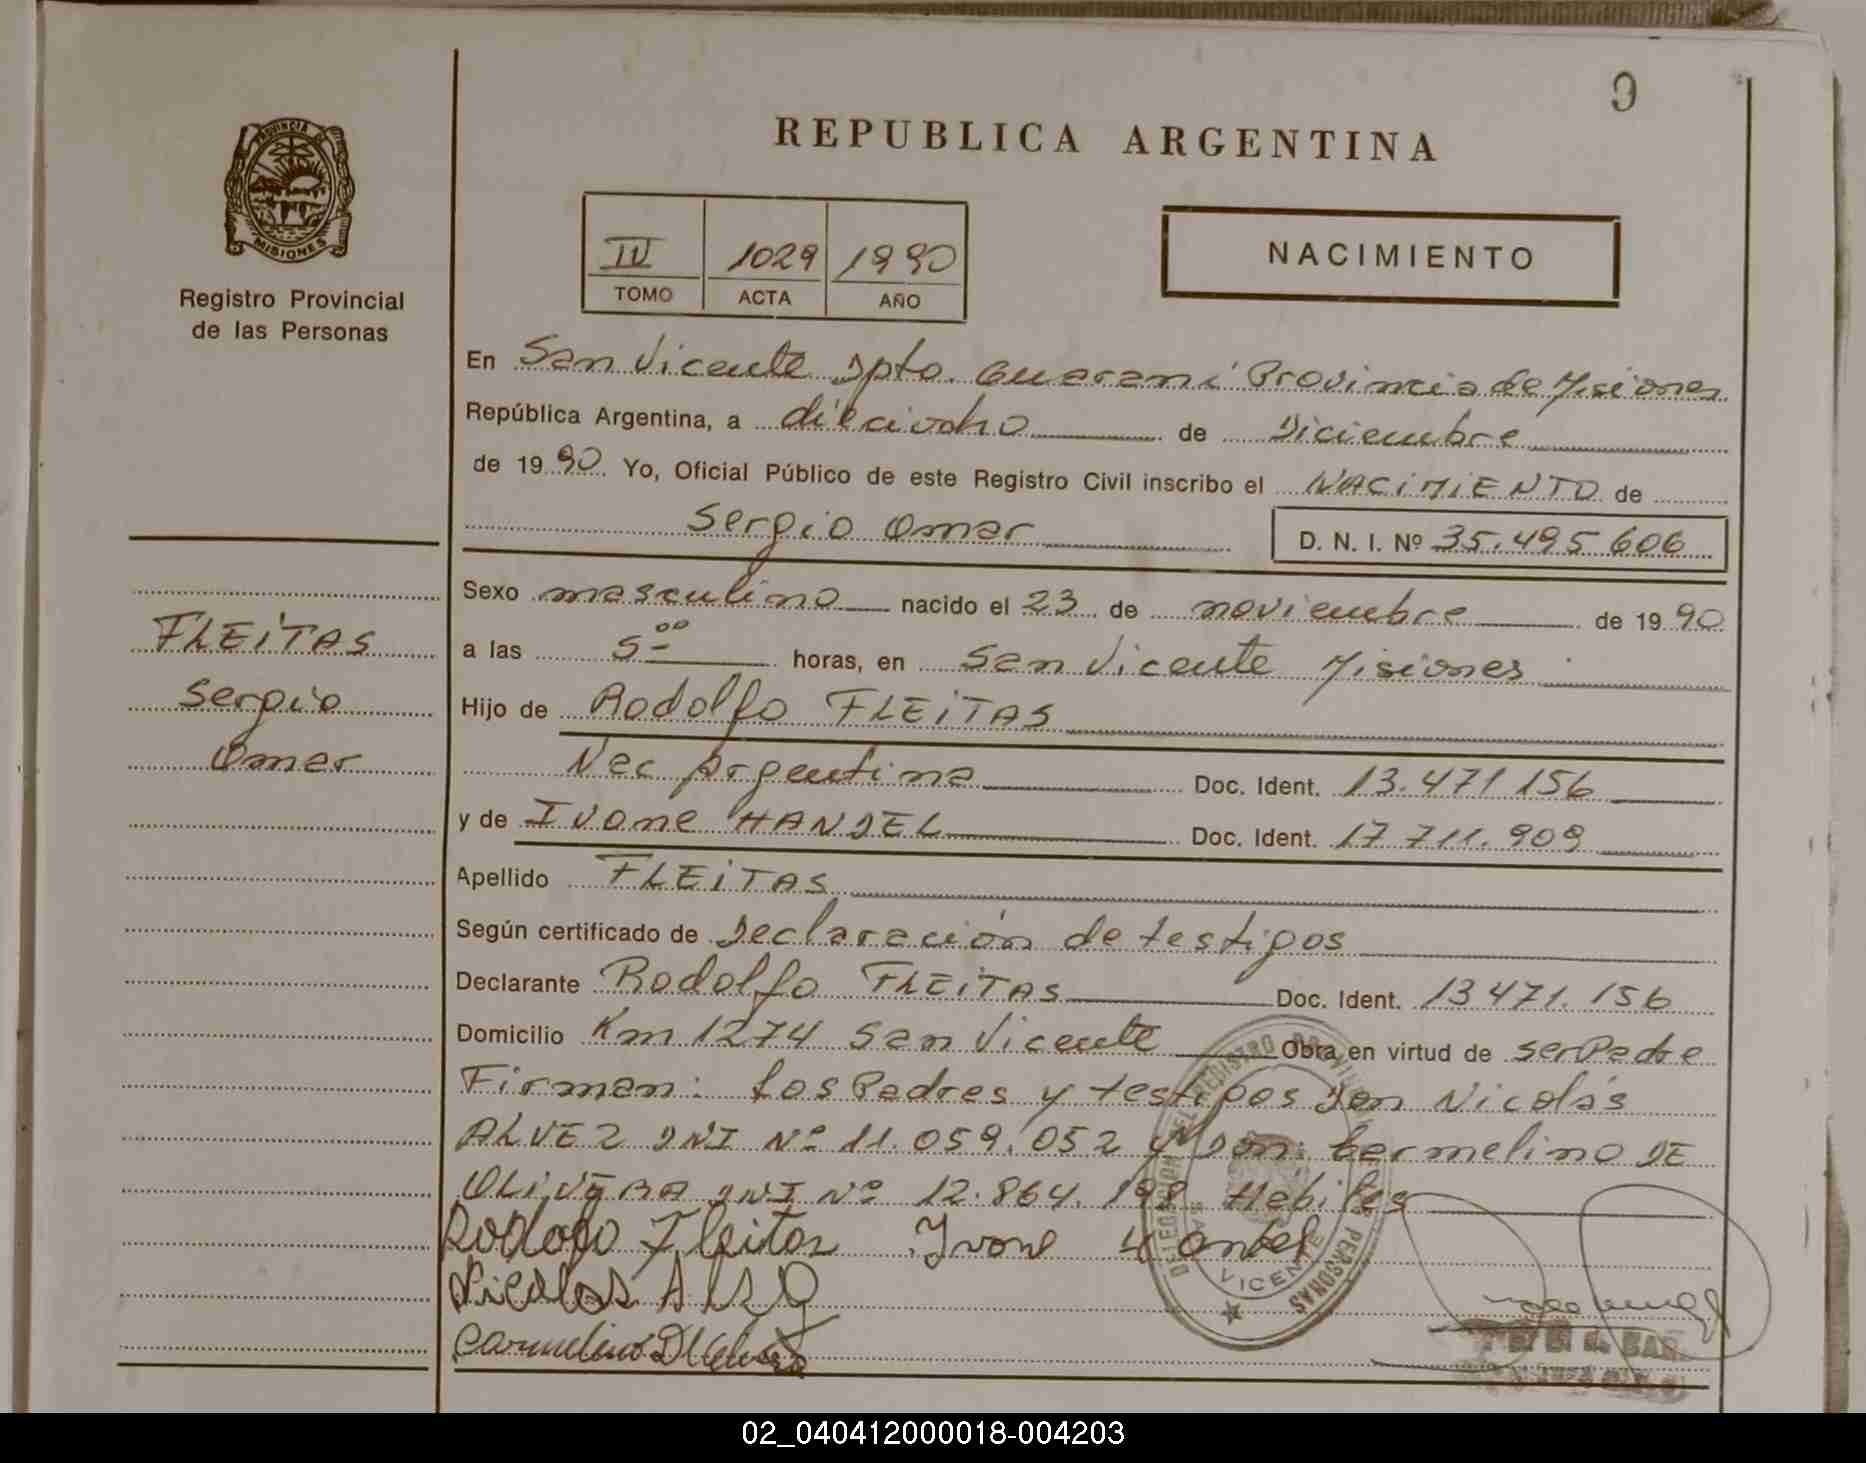 9
REPUBLICA ARGENTINA
PROVINCIA DE
MISIONES
Registro Provincial
de las Personas
IV 1029 1990
TOMO ACTA AÑO
NACIMIENTO
En San Vicente Dpto. Guarani Provincia de Misiones
República Argentina, a dieciocho de Diciembre
de 1990 Yo, Oficial Público de este Registro Civil inscribo el NACIMIENTO de
Sergio Omar D. N. I. Nº 35.495 606
Sexo masculino nacido el 23 de noviembre de 1990
a las 5 00 horas, en San Vicente Misiones
Hijo de Rodolfo FLEITAS
Nac Argentina Doc. Ident. 13.471 156
y de Ivone HANDEL Doc. Ident. 17 711.909
Apellido FLEITAS
Según certificado de Declaración de testigos
Declarante Rodolfo FLEITAS Doc. Ident. 13 471.156
Domicilio Km 1274 San Vicente Obra en virtud de ser Padre
Firman: Los Padres y testigos Don Nicolás
ALVEZ DNI Nº 11.059.052 y Don: Carmelino DE
OLIVERA DNI Nº 12.864.198 Habiles
Rodofo Fleitas Ivone
Nicolas
Carmelino
FLEITAS
Sergio
Omar
REGISTRO PROVINCIAL
PERSONAS
SAN VICENTE
02_040412000018-004203